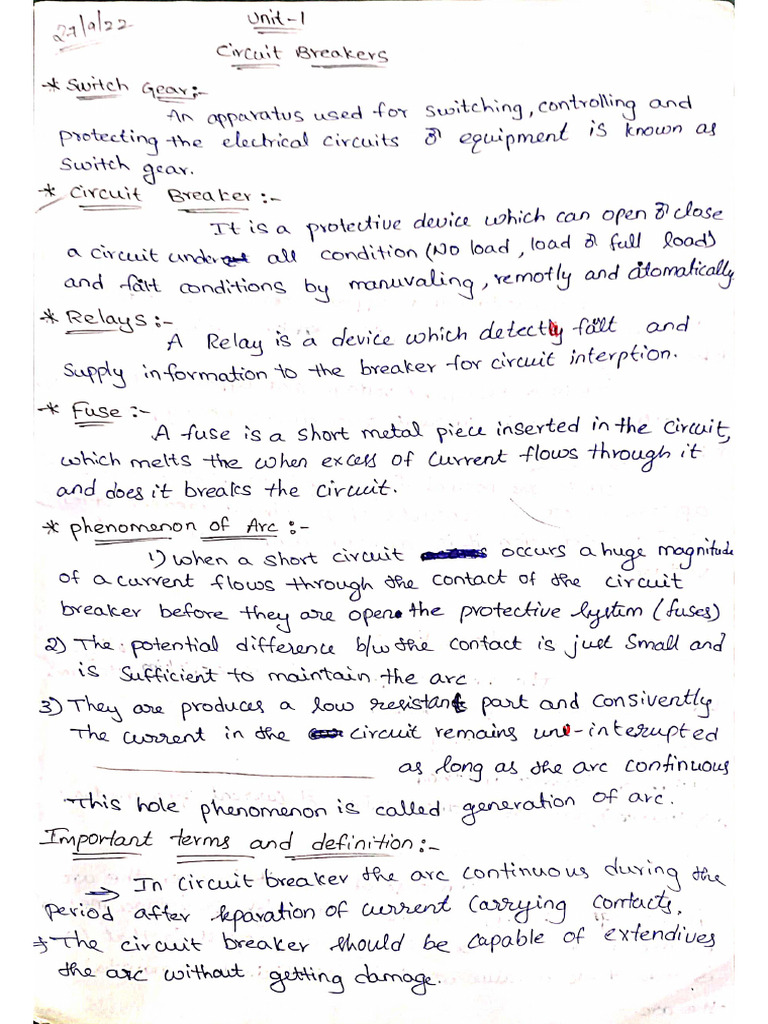 27/9/22
Unit-1
Circuit Breakers
* Switch Gear:-
An apparatus used for switching, controlling and
protecting the electrical circuits & equipment is known as
Switch gear.
* Circuit Breaker:-
It is a protective device which can open & close
a circuit under all condition (No load, load & full load)
and falt conditions by manuvaling, remotly and atomatically
* Relays:-
A Relay is a device which detectly falt and
Supply information to the breaker for circuit interption.
* Fuse:-
A fuse is a short metal piece inserted in the circuit,
which melts the when excess of current flows through it
and does it breaks the circuit.
* Phenomenon of Arc:-
1) When a short circuit occurs a huge magnitude
of a current flows through the contact of the circuit
breaker before they are open the protective System (fuses)
2) The potential difference b/w the contact is just Small and
is Sufficient to maintain the arc.
3) They are produces a low resistant part and consivently
The current in the circuit remains un-interupted
as long as the arc continuous
This hole phenomenon is called generation of arc.
Important terms and definition:-
→ In circuit breaker the arc continuous during the
Period after Sparation of current Carrying contacts.
→ The circuit breaker should be capable of extendives
the arc without getting damage.